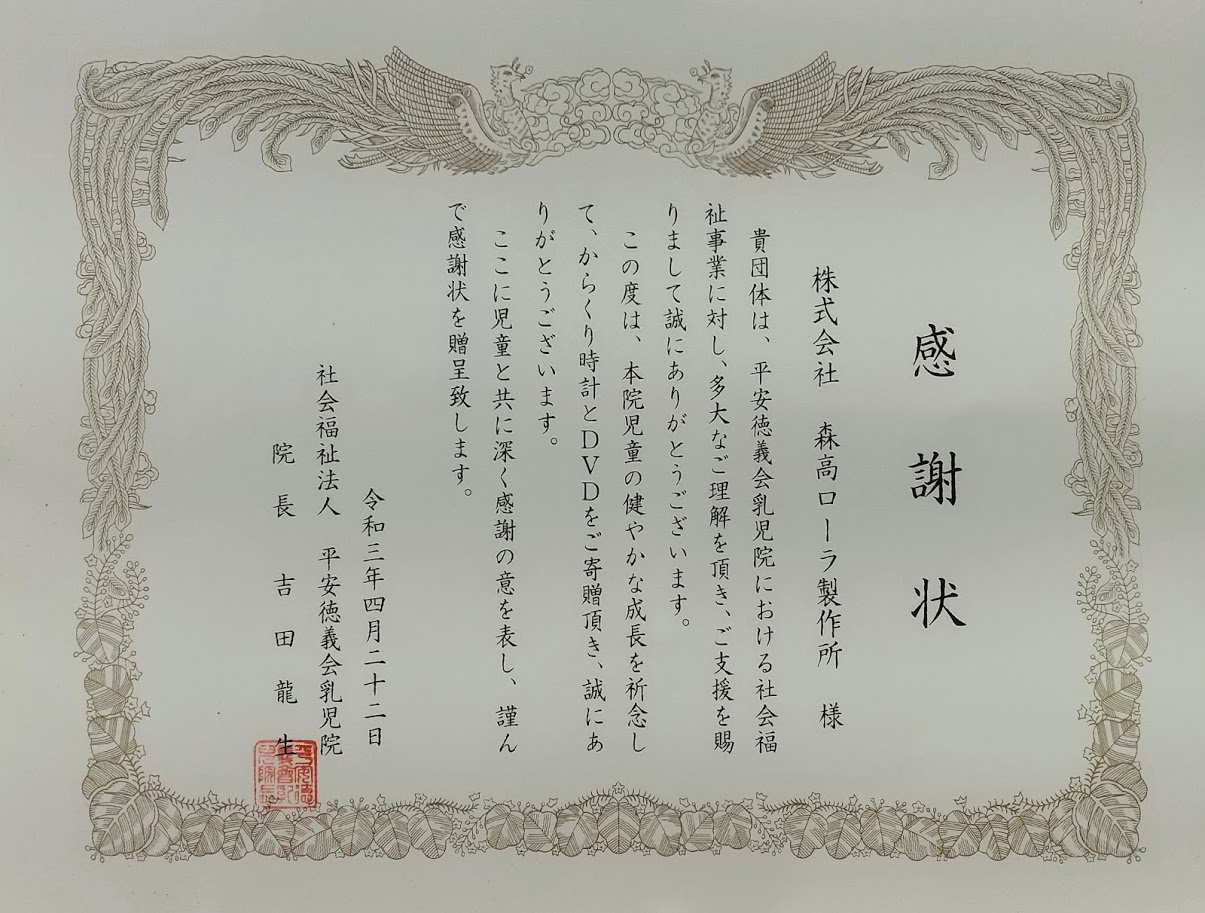 感謝状
株式会社　森高ローラ製作所　様
貴団体は、平安徳義会乳児院における社会福
祉事業に対し、多大なご理解を頂き、ご支援を賜
りまして誠にありがとうございます。
この度は、本院児童の健やかな成長を祈念し
て、からくり時計とDVDをご寄贈頂き、誠にあ
りがとうございます。
ここに児童と共に深く感謝の意を表し、謹ん
で感謝状を贈呈致します。
令和三年四月二十二日
社会福祉法人　平安徳義会乳児院
院長　吉田龍生